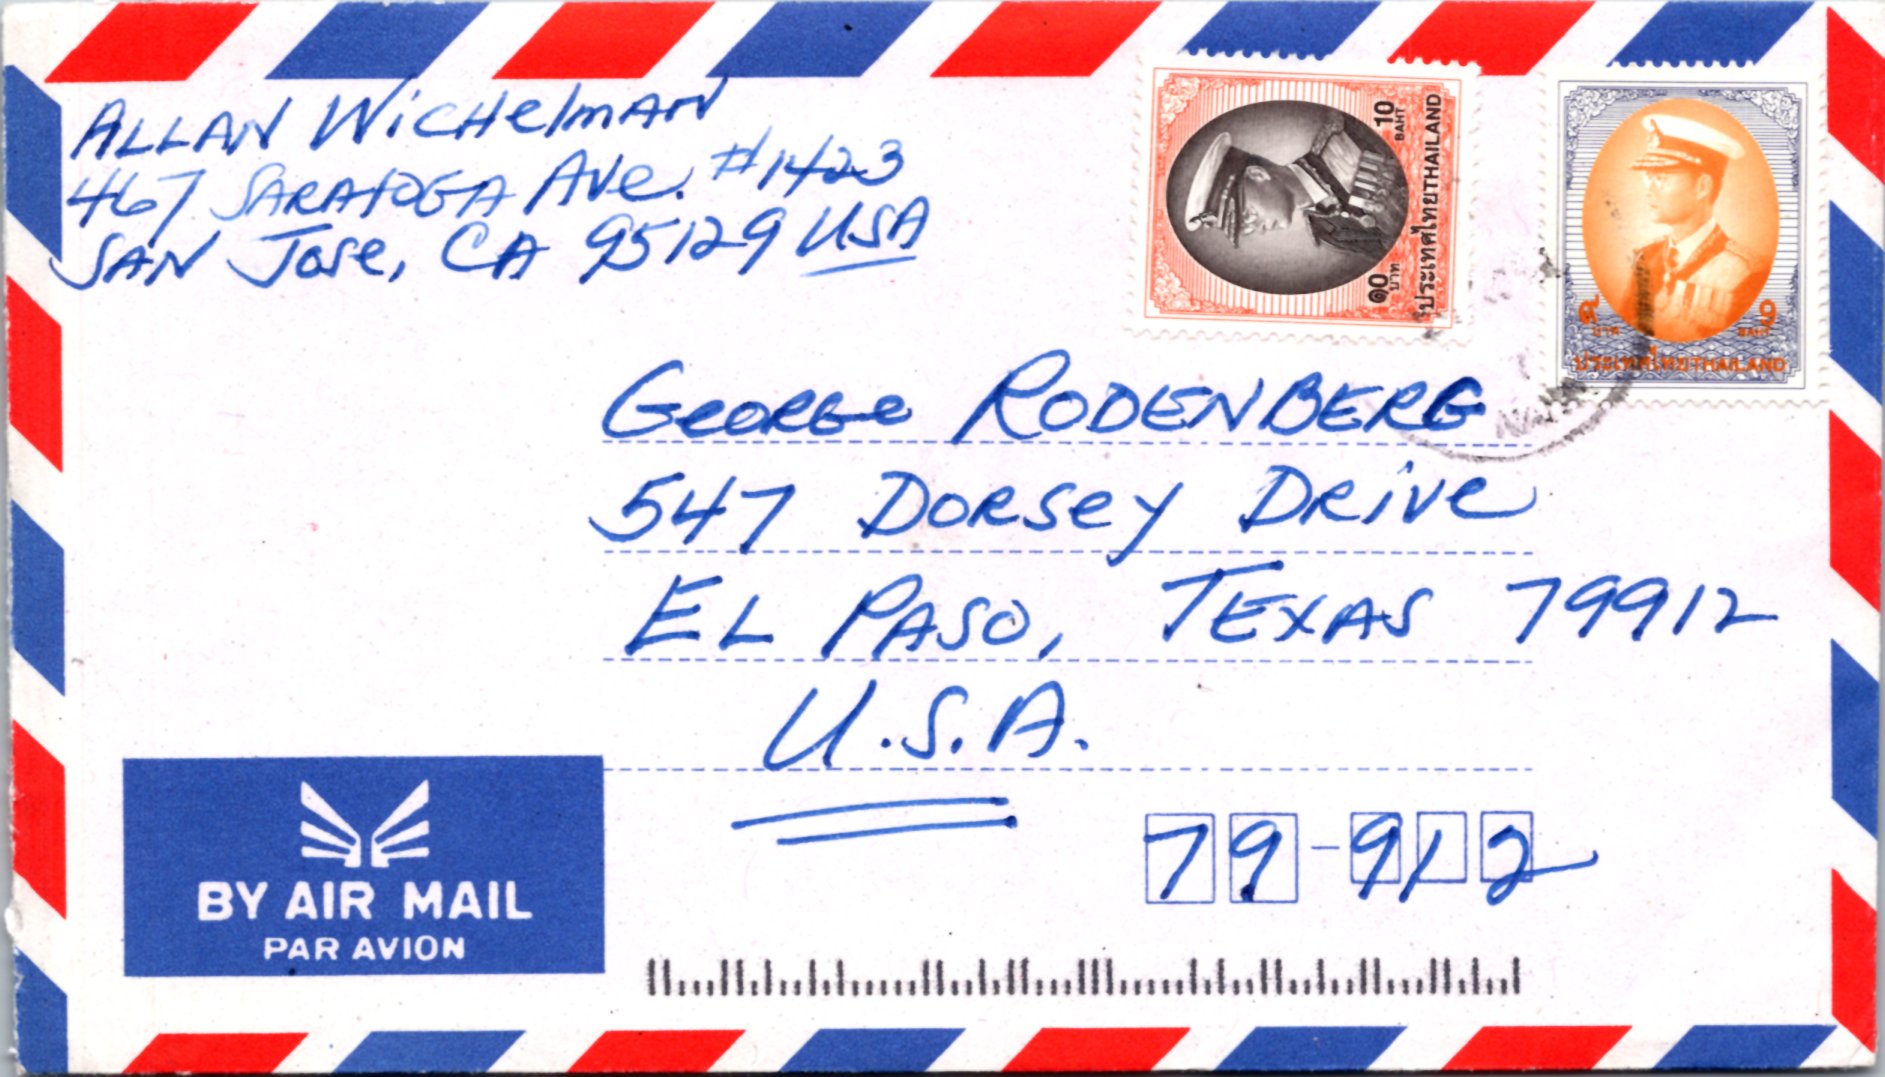 ALLAN WicHelmAN
467 SARATOGA Ave. #1423
SAN Jose, CA 95129 USA
๑๐ บาท 10 BAHT
ประเทศไทย THAILAND
๙ บาท 9 BAHT
ประเทศไทย THAILAND
GeoRGe RODENBERG
547 DoRsey DRive
EL PASO, TEXAS 79912
U.S.A.
79-912
BY AIR MAIL
PAR AVION